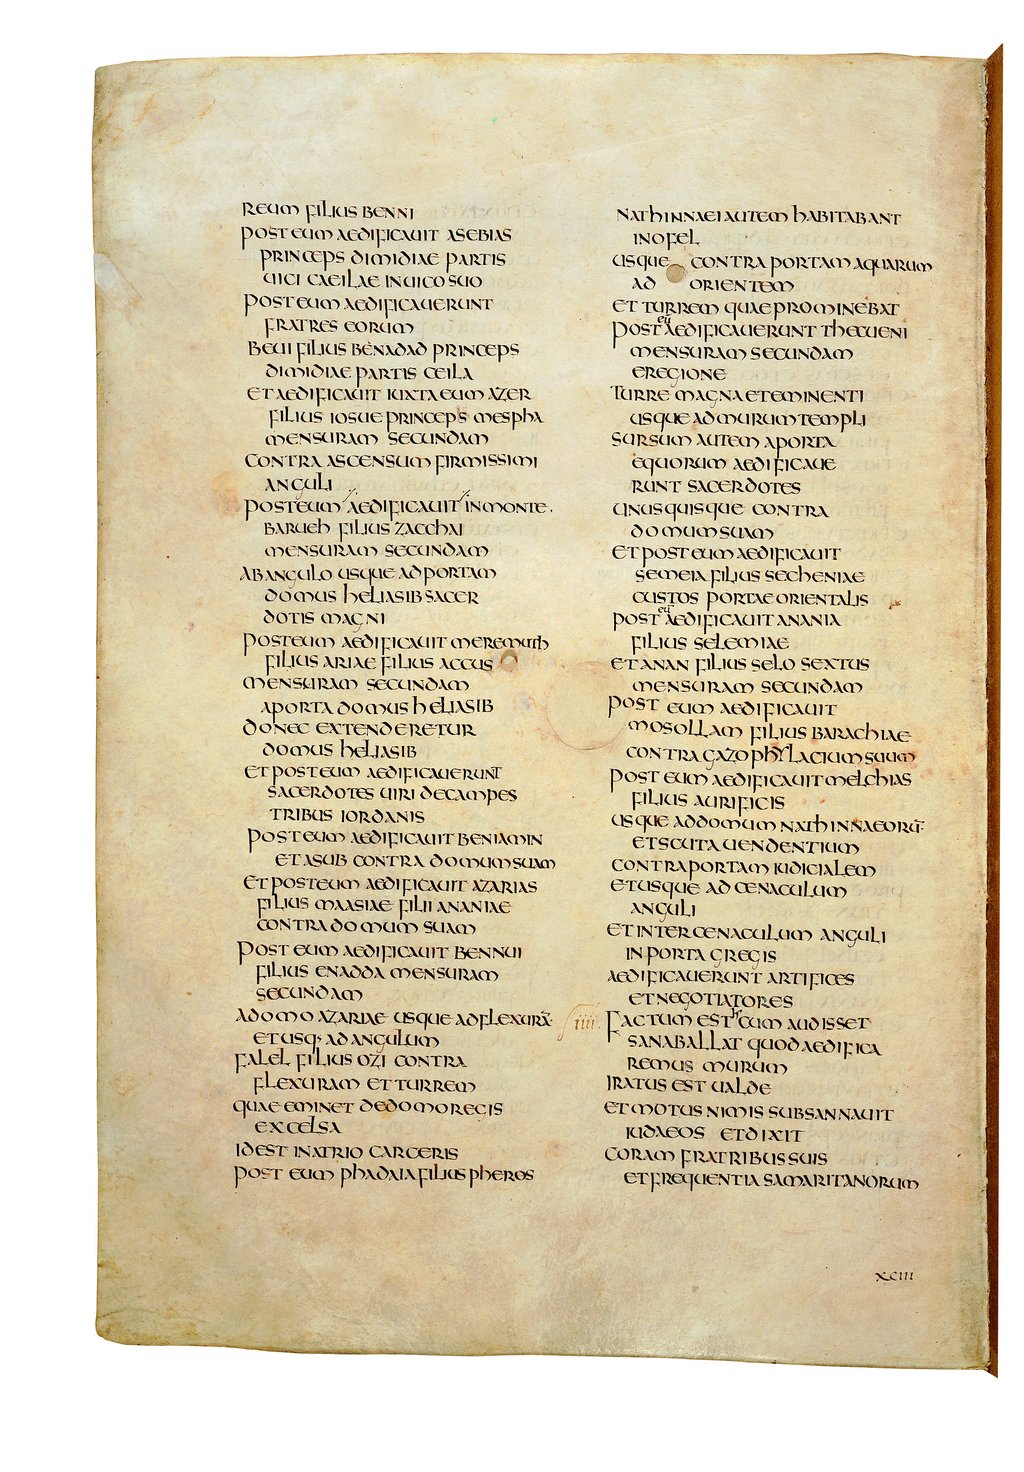 REUM FILIUS BENNI
POST EUM AEDIFICAUIT ASEBIAS
PRINCEPS DIMIDIAE PARTIS
UICI CAEILAE IN UICO SUO
POST EUM AEDIFICAUERUNT
FRATRES EORUM
BEUI FILIUS BENADAD PRINCEPS
DIMIDIAE PARTIS CEILA
ET AEDIFICAUIT IUXTA EUM AZER
FILIUS IOSUE PRINCEPS MESPHA
MENSURAM SECUNDAM
CONTRA ASCENSUM FIRMISSIMI
ANGULI
POST EUM AEDIFICAUIT IN MONTE.
BARUEH FILIUS ZACCHAI
MENSURAM SECUNDAM
AB ANGULO USQUE AD PORTAM
DOMUS HELIASIB SACER
DOTIS MAGNI
POST EUM AEDIFICAUIT MEREMUTH
FILIUS ARIAE FILIUS ACCUS
MENSURAM SECUNDAM
A PORTA DOMUS HELIASIB
DONEC EXTENDERETUR
DOMUS HELIASIB
ET POST EUM AEDIFICAUERUNT
SACERDOTES UIRI DE CAMPES
TRIBUS IORDANIS
POST EUM AEDIFICAUIT BENIAMIN
ET ASUB CONTRA DOMUM SUAM
ET POST EUM AEDIFICAUIT AZARIAS
FILIUS MAASIAE FILII ANANIAE
CONTRA DOMUM SUAM
POST EUM AEDIFICAUIT BENNUI
FILIUS ENADDA MENSURAM
SECUNDAM
A DOMO AZARIAE USQUE AD FLEXURĀ·
ET USQ; AD ANGULUM
FALEL FILIUS OZI CONTRA
FLEXURAM ET TURREM
QUAE EMINET DE DOMO REGIS
EXCELSA
ID EST IN ATRIO CARCERIS
POST EUM PHADAIA FILIUS PHEROS
NATHINNAEI AUTEM HABITABANT
IN OFEL
USQUE CONTRA PORTAM AQUARUM
AD ORIENTEM
ET TURREM QUAE PROMINEBAT
POST eu AEDIFICAUERUNT THECUENI
MENSURAM SECUNDAM
E REGIONE
TURRE MAGNA ET EMINENTI
USQUE AD MURUM TEMPLI
SURSUM AUTEM A PORTA
EQUORUM AEDIFICAUE
RUNT SACERDOTES
UNUSQUISQUE CONTRA
DOMUM SUAM
ET POST EUM AEDIFICAUIT
SEMEIA FILIUS SECHENIAE
CUSTOS PORTAE ORIENTALIS
POST eū AEDIFICAUIT ANANIA
FILIUS SELEMIAE
ET ANAN FILIUS SELO SEXTUS
MENSURAM SECUNDAM
POST EUM AEDIFICAUIT
MOSOLLAM FILIUS BARACHIAE
CONTRA GAZOPHYLACIUM SUUM
POST EUM AEDIFICAUIT MELCHIAS
FILIUS AURIFICIS
USQUE AD DOMUM NATHINNAEORŪ·
ET SCUTA UENDENTIUM
CONTRA PORTAM IUDICIALEM
ET USQUE AD CENACULUM
ANGULI
ET INTER CENACULUM ANGULI
IN PORTA GREGIS
AEDIFICAUERUNT ARTIFICES
ET NEGOTIATORES
IIII. FACTUM EST CUM AUDISSET
SANABALLAT QUOD AEDIFICA
REMUS MURUM
IRATUS EST UALDE
ET MOTUS NIMIS SUBSANNAUIT
IUDAEOS ET DIXIT
CORAM FRATRIBUS SUIS
ET FREQUENTIA SAMARITANORUM
XCIII